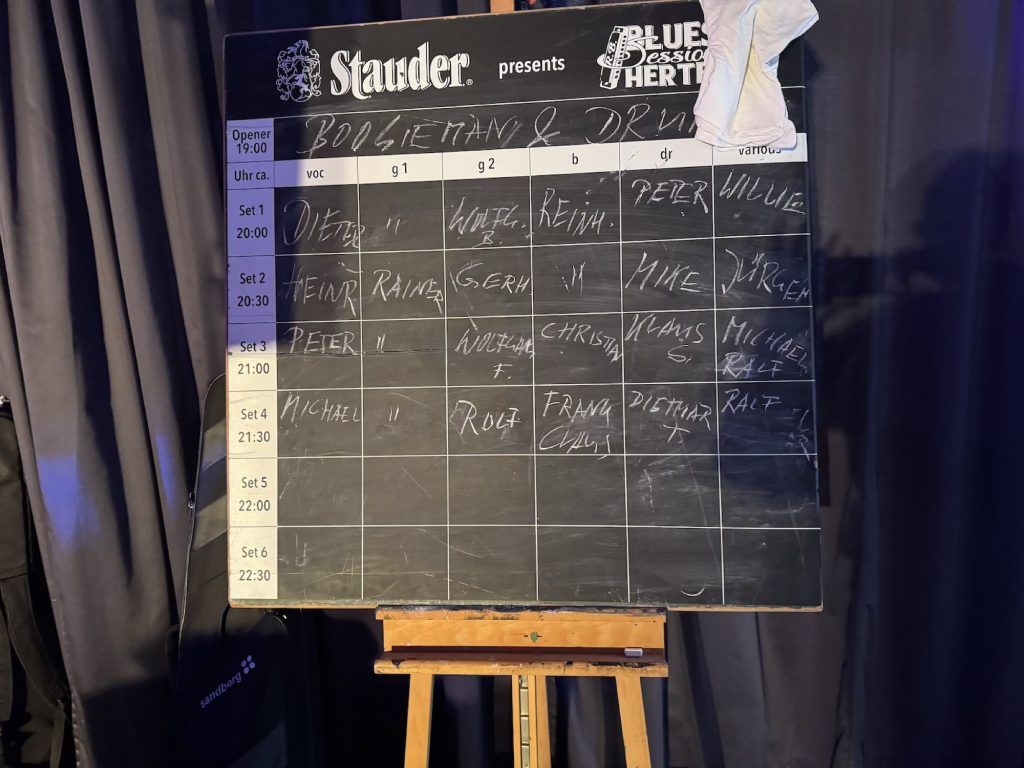 Stauder® presents BLUES
Session
HERTE
Opener
19:00 BOOGIEMAN & DRU
Uhr ca. voc g 1 g 2 b dr various
Set 1
20:00 DIETER " WOLFG. B. REINH. PETER WILLIE
Set 2
20:30 HEINR RAINER GERH " MIKE JÜRGEN
Set 3
21:00 PETER " WOLFGANG F. CHRISTIAN KLAUS G. MICHAEL RALF
Set 4
21:30 MICHAEL " ROLF FRANK CLAUS DIETMAR T RALF
Set 5
22:00
Set 6
22:30
sandberg